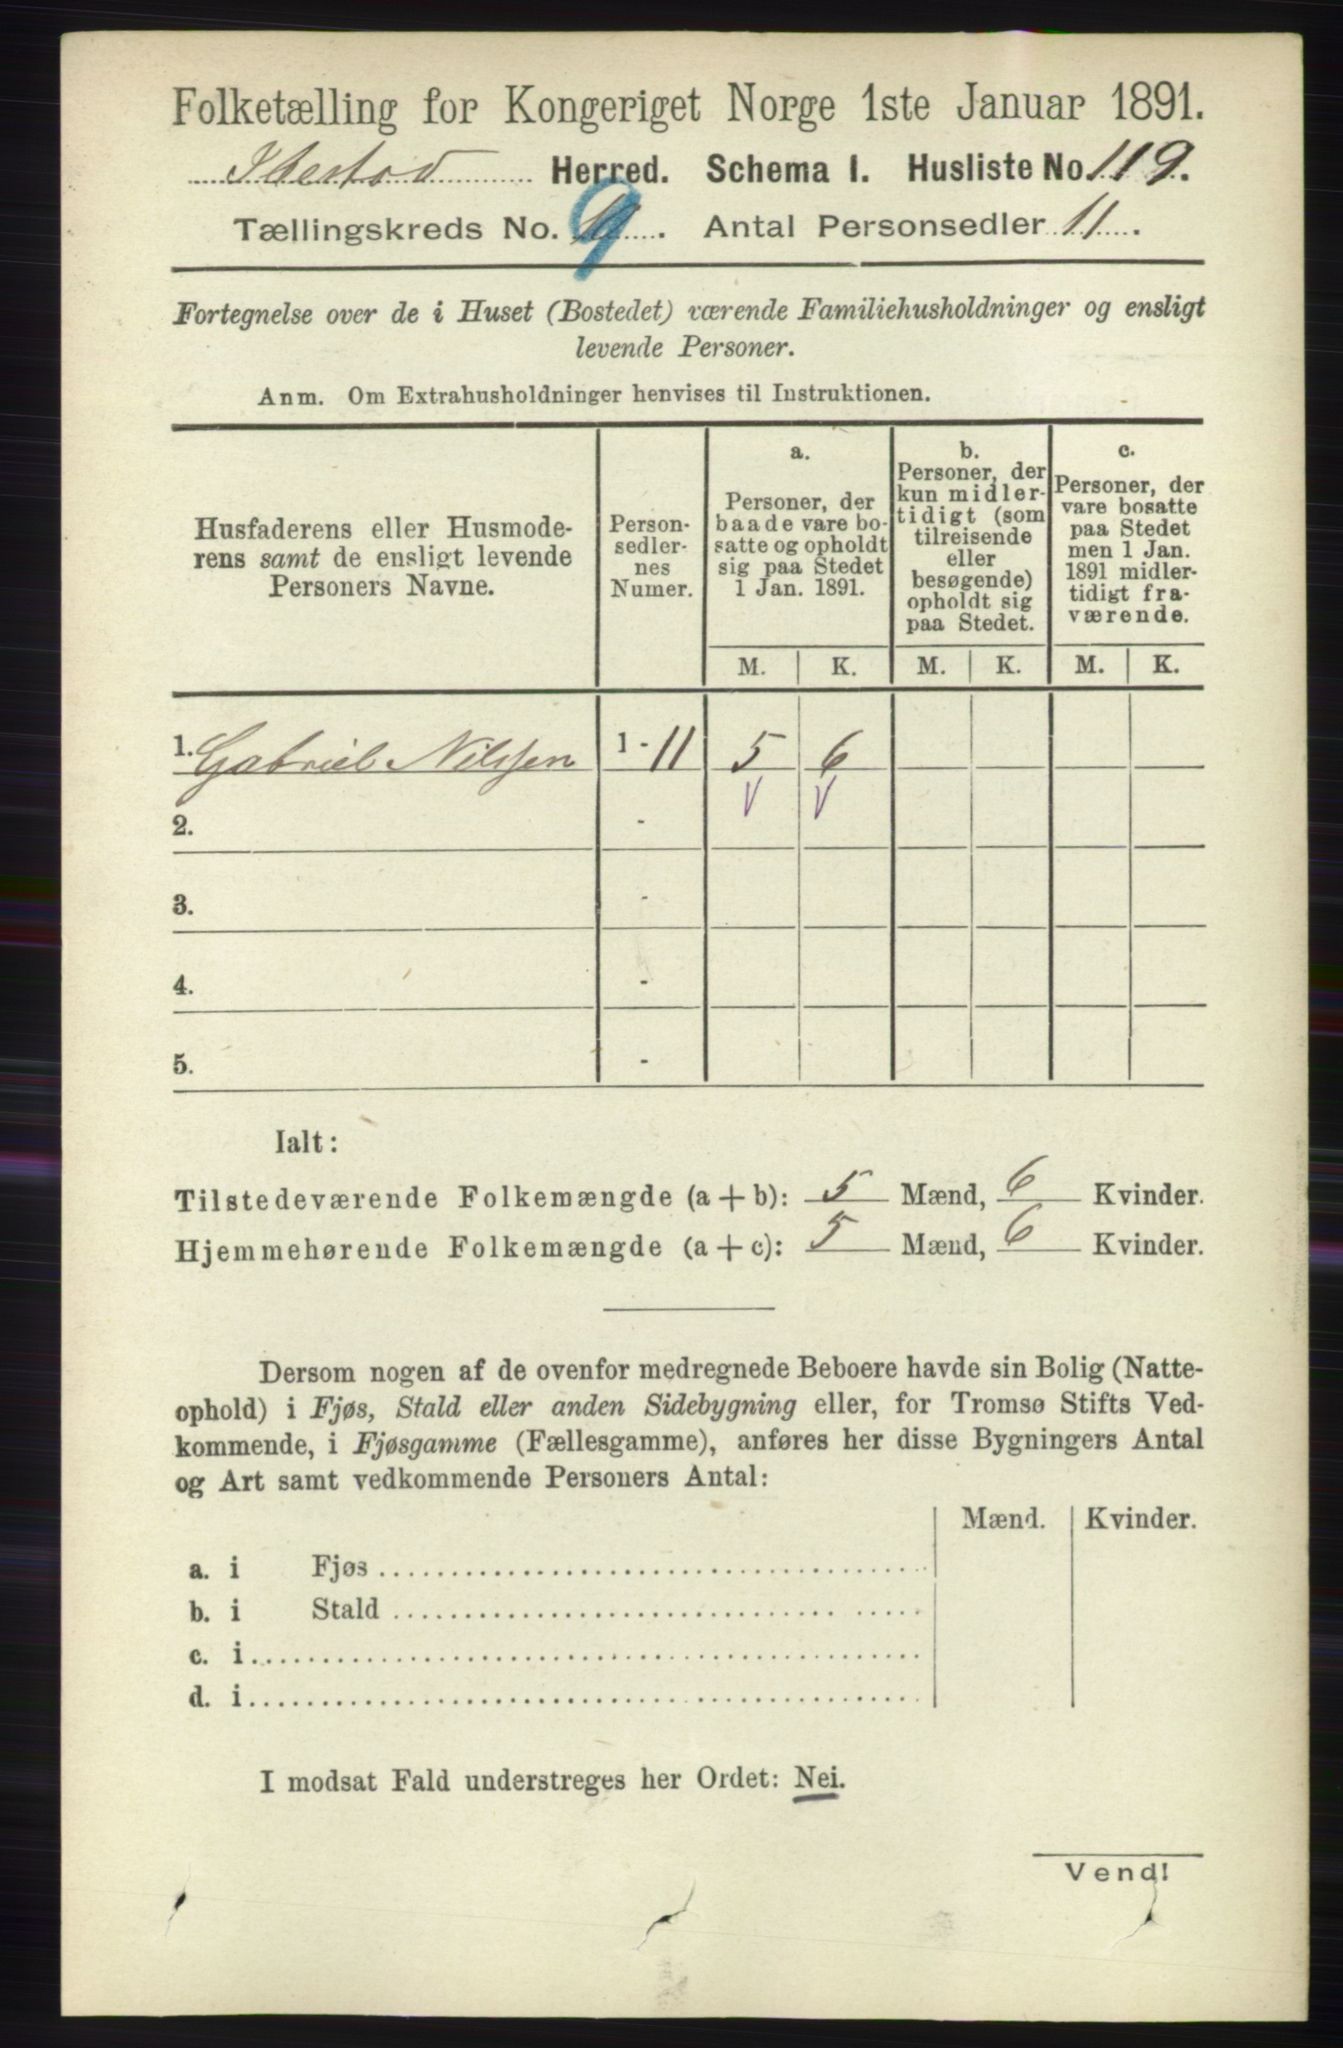 Folketælling for Kongeriget Norge 1ste Januar 1891.
Ibestad Herred. Schema I. Husliste No. 119.
Tællingskreds No. 9. Antal Personsedler 11.
Fortegnelse over de i Huset (Bostedet) værende Familiehusholdninger og ensligt
levende Personer.
Anm. Om Extrahusholdninger henvises til Instruktionen.
Husfaderens eller Husmode-
rens samt de ensligt levende
Personers Navne.
Person-
sedler-
nes
Numer.
a.
Personer, der
baade vare bo-
satte og opholdt
sig paa Stedet
1 Jan. 1891.
b.
Personer, der
kun midler-
tidigt (som
tilreisende
eller
besøgende)
opholdt sig
paa Stedet.
c.
Personer, der
vare bosatte
paa Stedet
men 1 Jan.
1891 midler-
tidigt fra-
værende.
M. K. M. K. M. K.
1. Gabriel Nilssen 1 - 11 5 6
2. -
3. -
4. -
5. -
Ialt:
Tilstedeværende Folkemængde (a + b): 5 Mænd, 6 Kvinder.
Hjemmehørende Folkemængde (a + c): 5 Mænd, 6 Kvinder.
Dersom nogen af de ovenfor medregnede Beboere havde sin Bolig (Natte-
ophold) i Fjøs, Stald eller anden Sidebygning eller, for Tromsø Stifts Ved-
kommende, i Fjøsgamme (Fællesgamme), anføres her disse Bygningers Antal
og Art samt vedkommende Personers Antal:
Mænd. Kvinder.
a. i Fjøs
b. i Stald
c. i
d. i
I modsat Fald understreges her Ordet: Nei.
Vend!